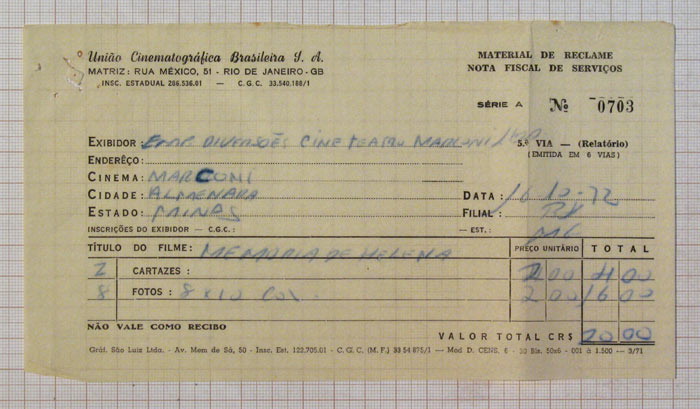 União Cinematográfica Brasileira S. A.
MATRIZ: RUA MÉXICO, 51 - RIO DE JANEIRO - GB
INSC. ESTADUAL 286.536.01 — C. G. C. 33.540.188/1
MATERIAL DE RECLAME
NOTA FISCAL DE SERVIÇOS
SÉRIE A Nº 0703
EXIBIDOR: EMP. DIVERSÕES CINE TEATRO MARCONI
5.ª VIA — (Relatório)
(EMITIDA EM 6 VIAS)
ENDERÊÇO:
CINEMA: MARCONI
CIDADE: ALMENARA DATA: 16 12-72
ESTADO: MINAS FILIAL:
INSCRIÇÕES DO EXIBIDOR — C.G.C.: — EST.: MG
TÍTULO DO FILME: MEMORIA DE HELENA PREÇO UNITÁRIO TOTAL
2 CARTAZES: 2 00 4 00
8 FOTOS: 8X10 COL. 2 00 16 00
NÃO VALE COMO RECIBO
VALOR TOTAL CR$ 20 00
Gráf. São Luiz Ltda. - Av. Mem de Sá, 50 - Insc. Est. 122.705.01 - C. G. C. (M. F.) 33 54 875/1 — Mod D. CENS. 6 - 30 Bls. 50x6 - 001 à 1.500 — 3/71